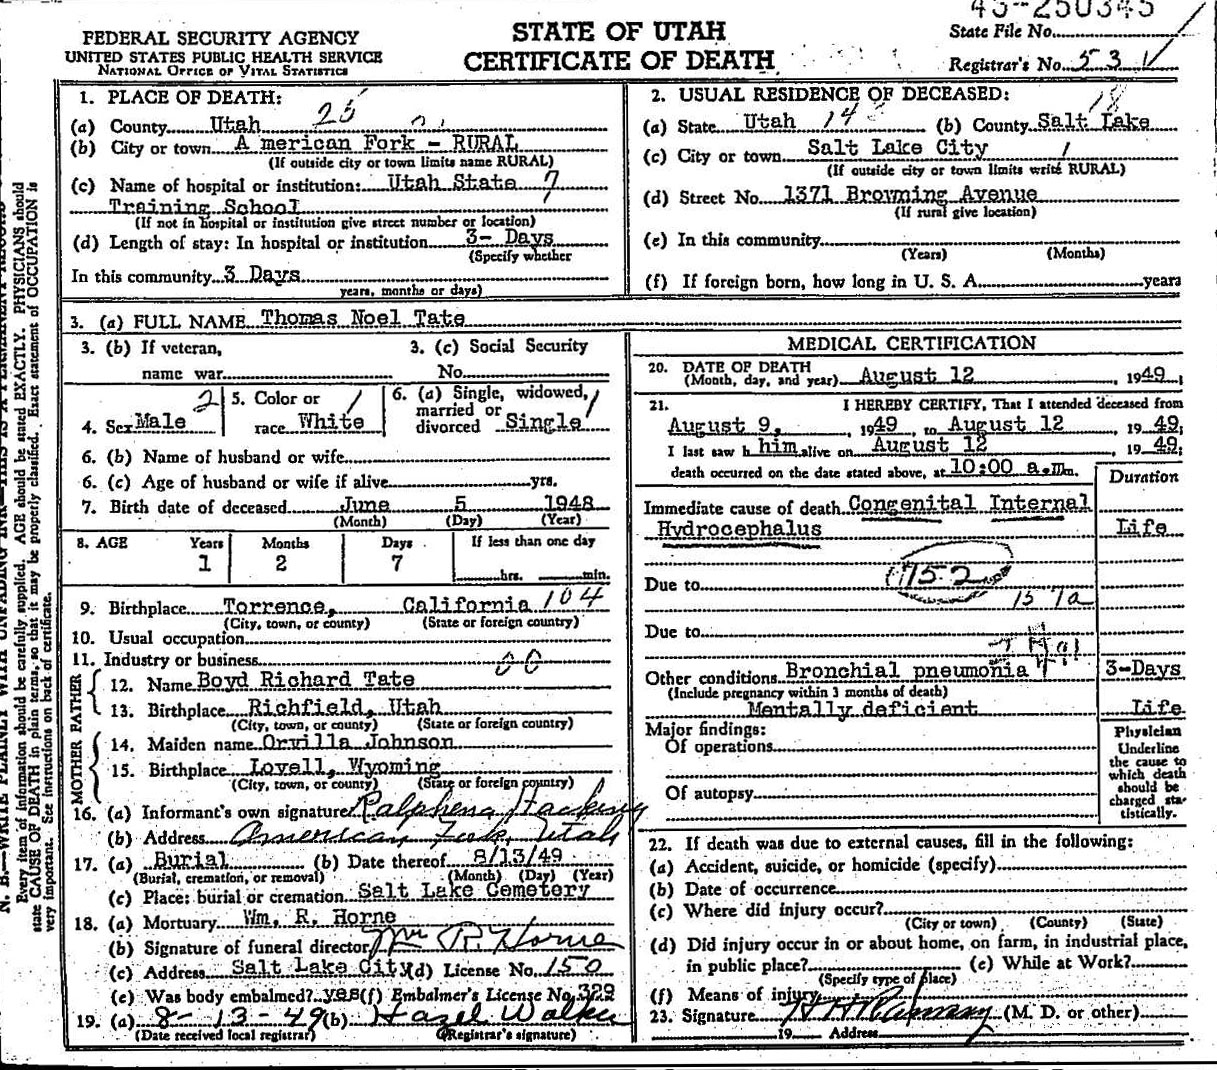 45-250345
FEDERAL SECURITY AGENCY
UNITED STATES PUBLIC HEALTH SERVICE
NATIONAL OFFICE OF VITAL STATISTICS
STATE OF UTAH
CERTIFICATE OF DEATH
State File No.
Registrar's No. 531
1. PLACE OF DEATH:
25
(a) County Utah
(b) City or town A merican Fork - RURAL
(If outside city or town limits name RURAL)
(c) Name of hospital or institution: Utah State 7
Training School
(If not in hospital or institution give street number or location)
(d) Length of stay: In hospital or institution 3- Days
(Specify whether
In this community 3 Days
years, months or days)
2. USUAL RESIDENCE OF DECEASED:
18
(a) State Utah 14 (b) County Salt Lake
(c) City or town Salt Lake City 1
(If outside city or town limits write RURAL)
(d) Street No. 1371 Browning Avenue
(If rural give location)
(e) In this community
(Years) (Months)
(f) If foreign born, how long in U. S. A. years
3. (a) FULL NAME Thomas Noel Tate
3. (b) If veteran, 3. (c) Social Security
name war No.
4. Sex Male 2 5. Color or race White 1 6. (a) Single, widowed, married or divorced Single 1
6. (b) Name of husband or wife
6. (c) Age of husband or wife if alive yrs.
7. Birth date of deceased June 5 1948
(Month) (Day) (Year)
8. AGE Years Months Days If less than one day
1 2 7 hrs. min.
9. Birthplace Torrence, California 104
(City, town, or county) (State or foreign country)
10. Usual occupation
11. Industry or business 00
FATHER
12. Name Boyd Richard Tate
13. Birthplace Richfield, Utah
(City, town, or county) (State or foreign country)
MOTHER
14. Maiden name Orvilla Johnson
15. Birthplace Lovell, Wyoming
(City, town, or county) (State or foreign country)
16. (a) Informant's own signature Ralphena Hacking
(b) Address American Fork, Utah
17. (a) Burial (b) Date thereof 8/13/49
(Burial, cremation, or removal) (Month) (Day) (Year)
(c) Place: burial or cremation Salt Lake Cemetery
18. (a) Mortuary Wm. R. Horne
(b) Signature of funeral director Wm R Horne
(c) Address Salt Lake City (d) License No. 150
(e) Was body embalmed? yes (f) Embalmer's License No. 329
19. (a) 8-13-49 (b) Hazel Walker
(Date received local registrar) (Registrar's signature)
MEDICAL CERTIFICATION
20. DATE OF DEATH
(Month, day, and year) August 12, 1949;
21. I HEREBY CERTIFY, That I attended deceased from
August 9, 1949 to August 12, 1949;
I last saw him alive on August 12, 1949;
death occurred on the date stated above, at 10:00 a.m.
Duration
Immediate cause of death Congenital Internal
Hydrocephalus Life
752
Due to
157a
Due to
Other conditions Bronchial pneumonia 3-Days
(Include pregnancy within 3 months of death)
Mentally deficient Life
Major findings:
Of operations
Of autopsy
Physician
Underline
the cause to
which death
should be
charged sta-
tistically.
22. If death was due to external causes, fill in the following:
(a) Accident, suicide, or homicide (specify)
(b) Date of occurrence
(c) Where did injury occur?
(City or town) (County) (State)
(d) Did injury occur in or about home, on farm, in industrial place,
in public place? (e) While at Work?
(Specify type of place)
(f) Means of injury
23. Signature H H Ramsay (M. D. or other)
19 Address
N. B.—WRITE PLAINLY WITH UNFADING INK—THIS IS A PERMANENT RECORD
Every item of information should be carefully supplied. AGE should be stated EXACTLY. PHYSICIANS should
state CAUSE OF DEATH in plain terms, so that it may be properly classified. Exact statement of OCCUPATION is
very important. See instructions on back of certificate.